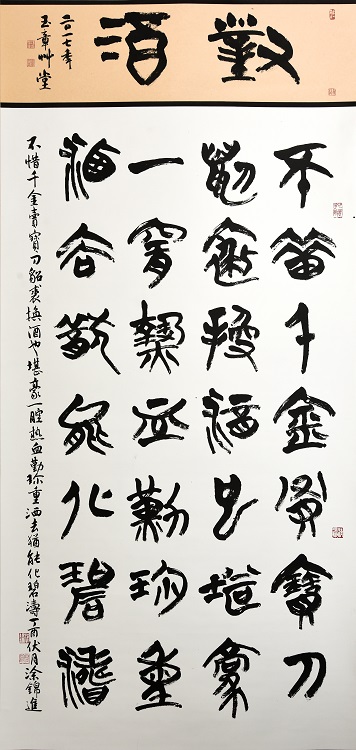 對酒
二〇一七年
玉章艸堂
不惜千金買寶刀
貂裘換酒也堪豪
一腔熱血勤珍重
灑去猶能化碧濤
不惜千金賣寶刀貂裘換酒也堪豪一腔熱血勤珍重洒去猶能化碧濤丁酉伏月涂錦進